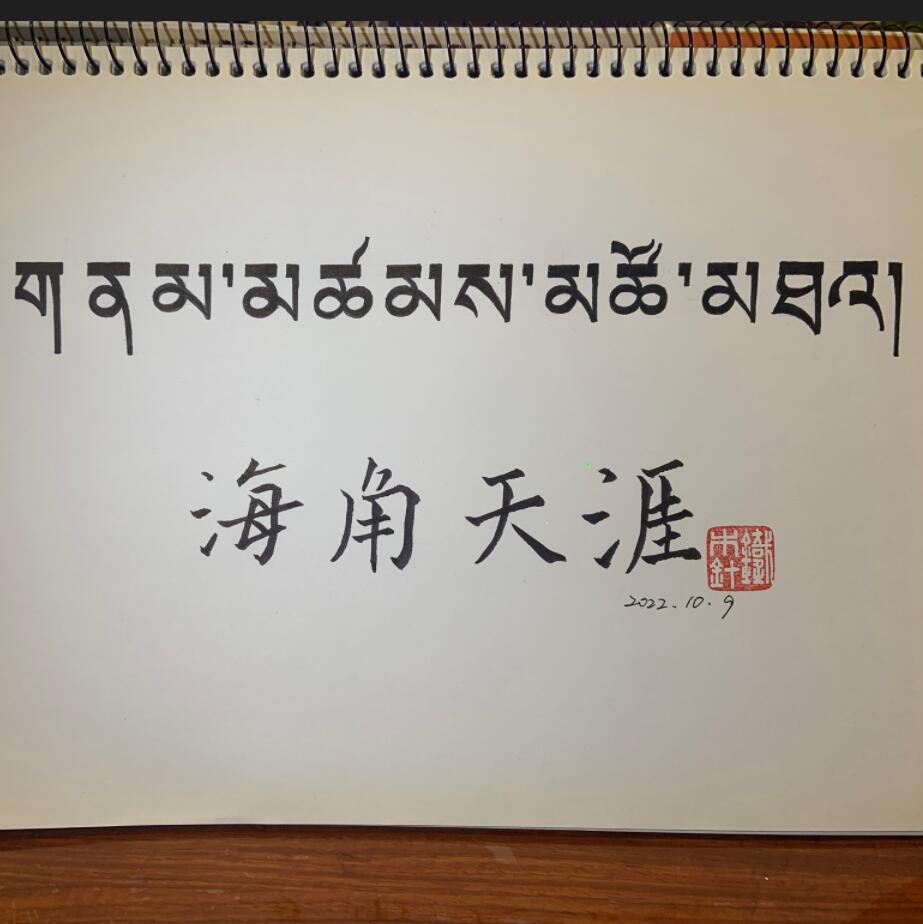 གནམ་མཚམས་མཚོ་མཐའ།
海角天涯
2022.10.9